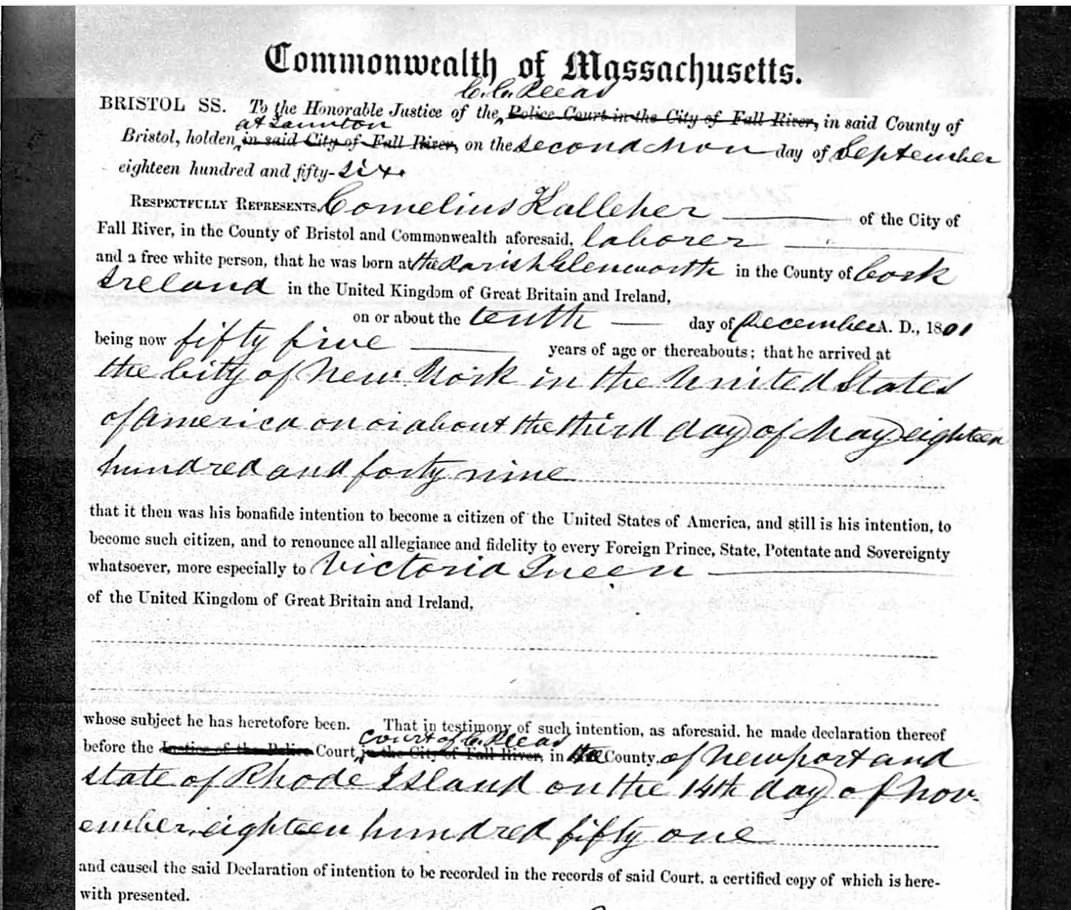 Commonwealth of Massachusetts.
C. C. Pleas
BRISTOL SS. To the Honorable Justice of the, Police Court in the City of Fall River, in said County of
at Taunton
Bristol, holden, in said City of Fall River, on the second Mon day of September
eighteen hundred and fifty-six.
RESPECTFULLY REPRESENTS, Cornelius Kalleher of the City of
Fall River, in the County of Bristol and Commonwealth aforesaid, laborer
and a free white person, that he was born at the Parish Glenworth in the County of Cork
Ireland in the United Kingdom of Great Britain and Ireland,
on or about the tenth day of December A. D., 1801
being now fifty five years of age or thereabouts; that he arrived at
the City of New York in the United States
of America on or about the third day of May eighteen
hundred and forty nine
that it then was his bonafide intention to become a citizen of the United States of America, and still is his intention, to
become such citizen, and to renounce all allegiance and fidelity to every Foreign Prince, State, Potentate and Sovereignty
whatsoever, more especially to Victoria Queen
of the United Kingdom of Great Britain and Ireland,
whose subject he has heretofore been. That in testimony of such intention, as aforesaid. he made declaration thereof
Court of C. Pleas
before the Justice of the Police Court, in the City of Fall River, in the County, of Newport and
state of Rhode Island on the 14th day of Nov-
ember, eighteen hundred fifty one
and caused the said Declaration of intention to be recorded in the records of said Court, a certified copy of which is here-
with presented.